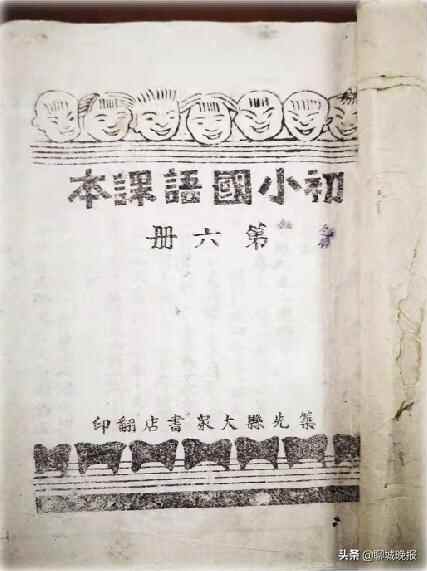 初小國語課本
第六冊
築先縣大衆書店翻印
头条 @聊城晚报